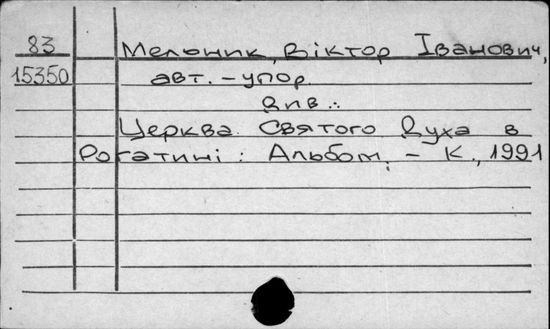 83 Мельник, Віктор Іванович,
15350 авт.-упор.
Див.:
Церква Святого Духа в
Рогатині: Альбом. - К., 1991